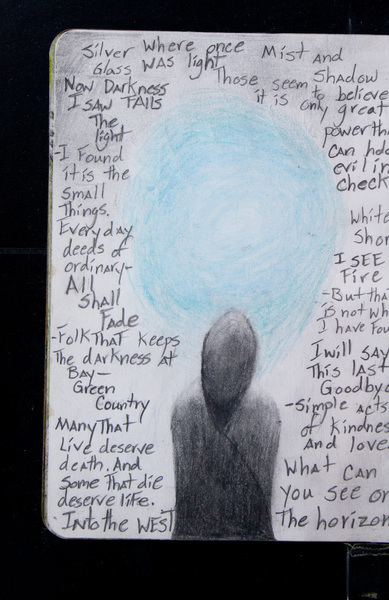 Silver Where once Mist and
Glass was light Shadow
Now Darkness Those seem to believe
I saw Falls it is only great
The
light
-I Found
it is the
small
Things.
Everyday
deeds of
ordinary-
All
Shall
Fade
-Folk That keeps
The darkness at
Bay-
Green
Country
Many That
Live deserve
death. And
Some that die
deserve life.
Into the WEST
power
Can
evil in
check
White
I SEE
Fire
-But
is not
I have
I will say
This last
Goodbye
-Simple acts
of kindness
and love.
What Can
you see on
The horizon